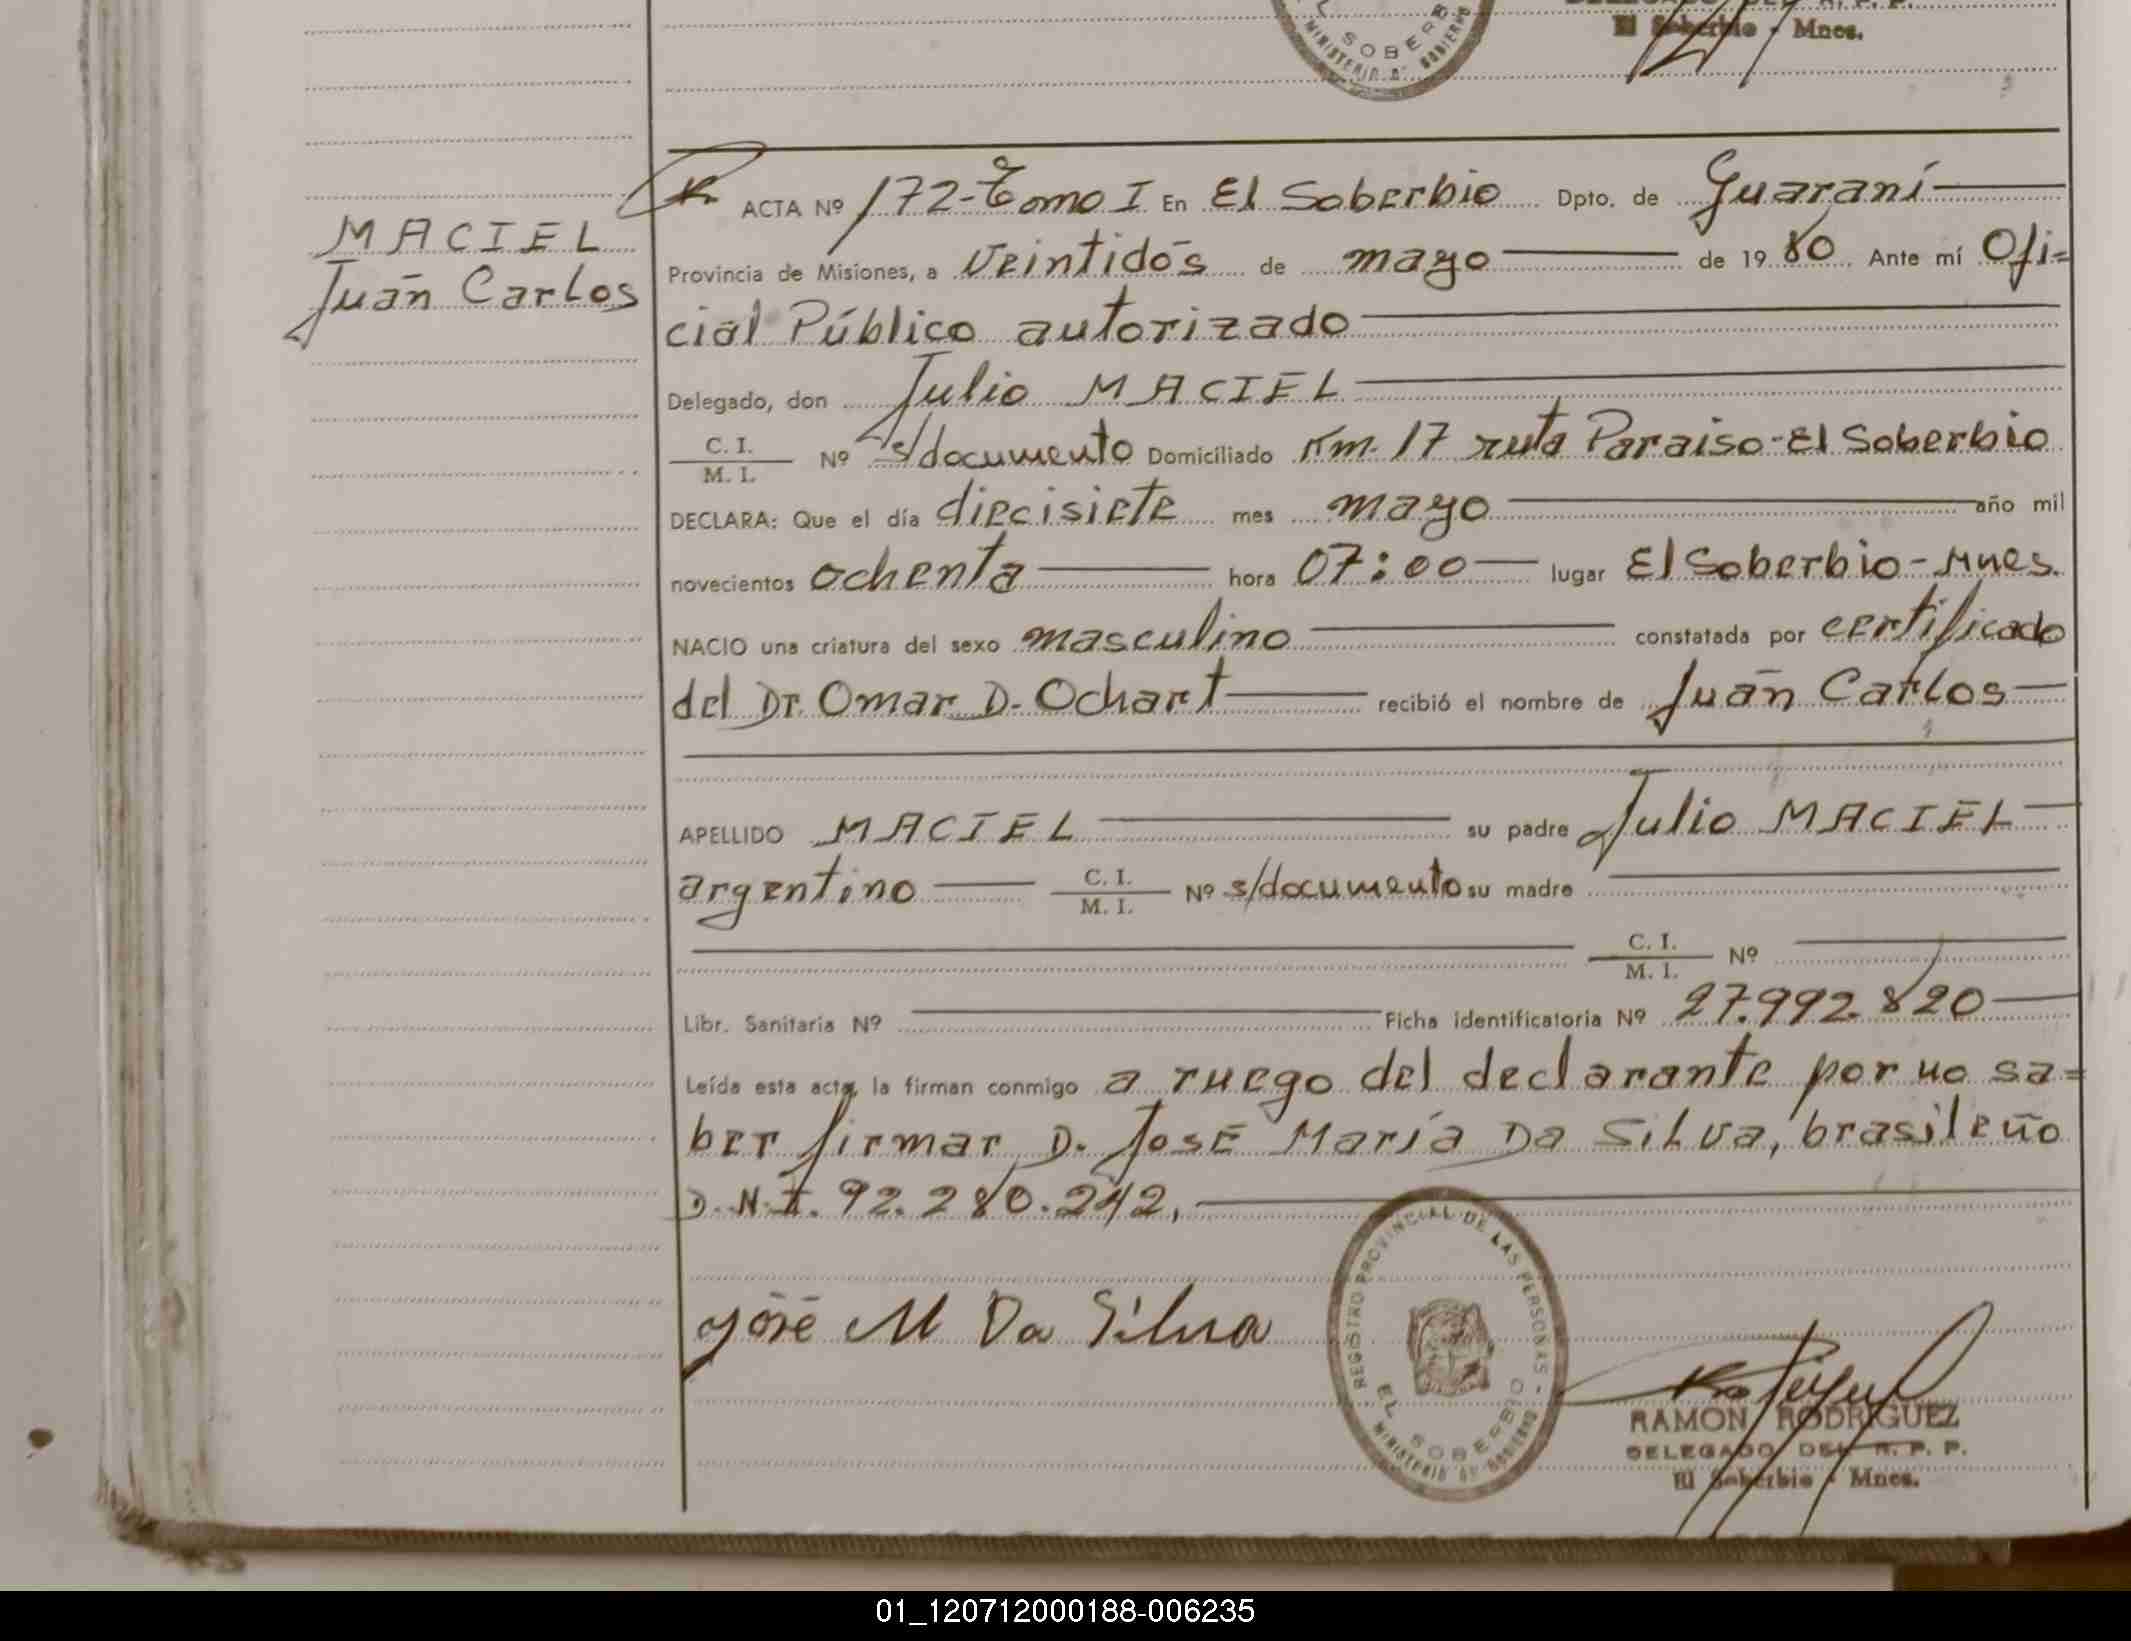 EL SOBERB
MINISTERIO DE GOBIERNO
El Soberbio - Mnes.
ACTA Nº 172-Tomo I En El Soberbio Dpto. de Guaraní
MACIEL
Juan Carlos
Provincia de Misiones, a veintidos de mayo de 1980 Ante mí Ofi=
cial Público autorizado
Delegado, don Julio MACIEL
C. I.
M. I. Nº s/documento Domiciliado Km. 17 ruta Paraiso-El Soberbio
DECLARA: Que el día diecisiete mes mayo año mil
novecientos ochenta hora 07:00 lugar El Soberbio-Mnes.
NACIO una criatura del sexo masculino constatada por certificado
del Dr. Omar D. Ochart recibió el nombre de Juan Carlos
APELLIDO MACIEL su padre Julio MACIEL
argentino C. I. M. I. Nº s/documento su madre
C. I. M. I. Nº
Libr. Sanitaria Nº Ficha identificatoria Nº 27.992.820
Leída esta acta, la firman conmigo a ruego del declarante por no sa=
ber firmar, D. José María Da Silva, brasileño
D.N.I. 92.280.242,
José M Da Silva
REGISTRO PROVINCIAL DE LAS PERSONAS -
EL SOBERBIO
MINISTERIO DE GOBIERNO
RAMON RODRIGUEZ
DELEGADO DEL R. P. P.
El Soberbio - Mnes.
01_120712000188-006235